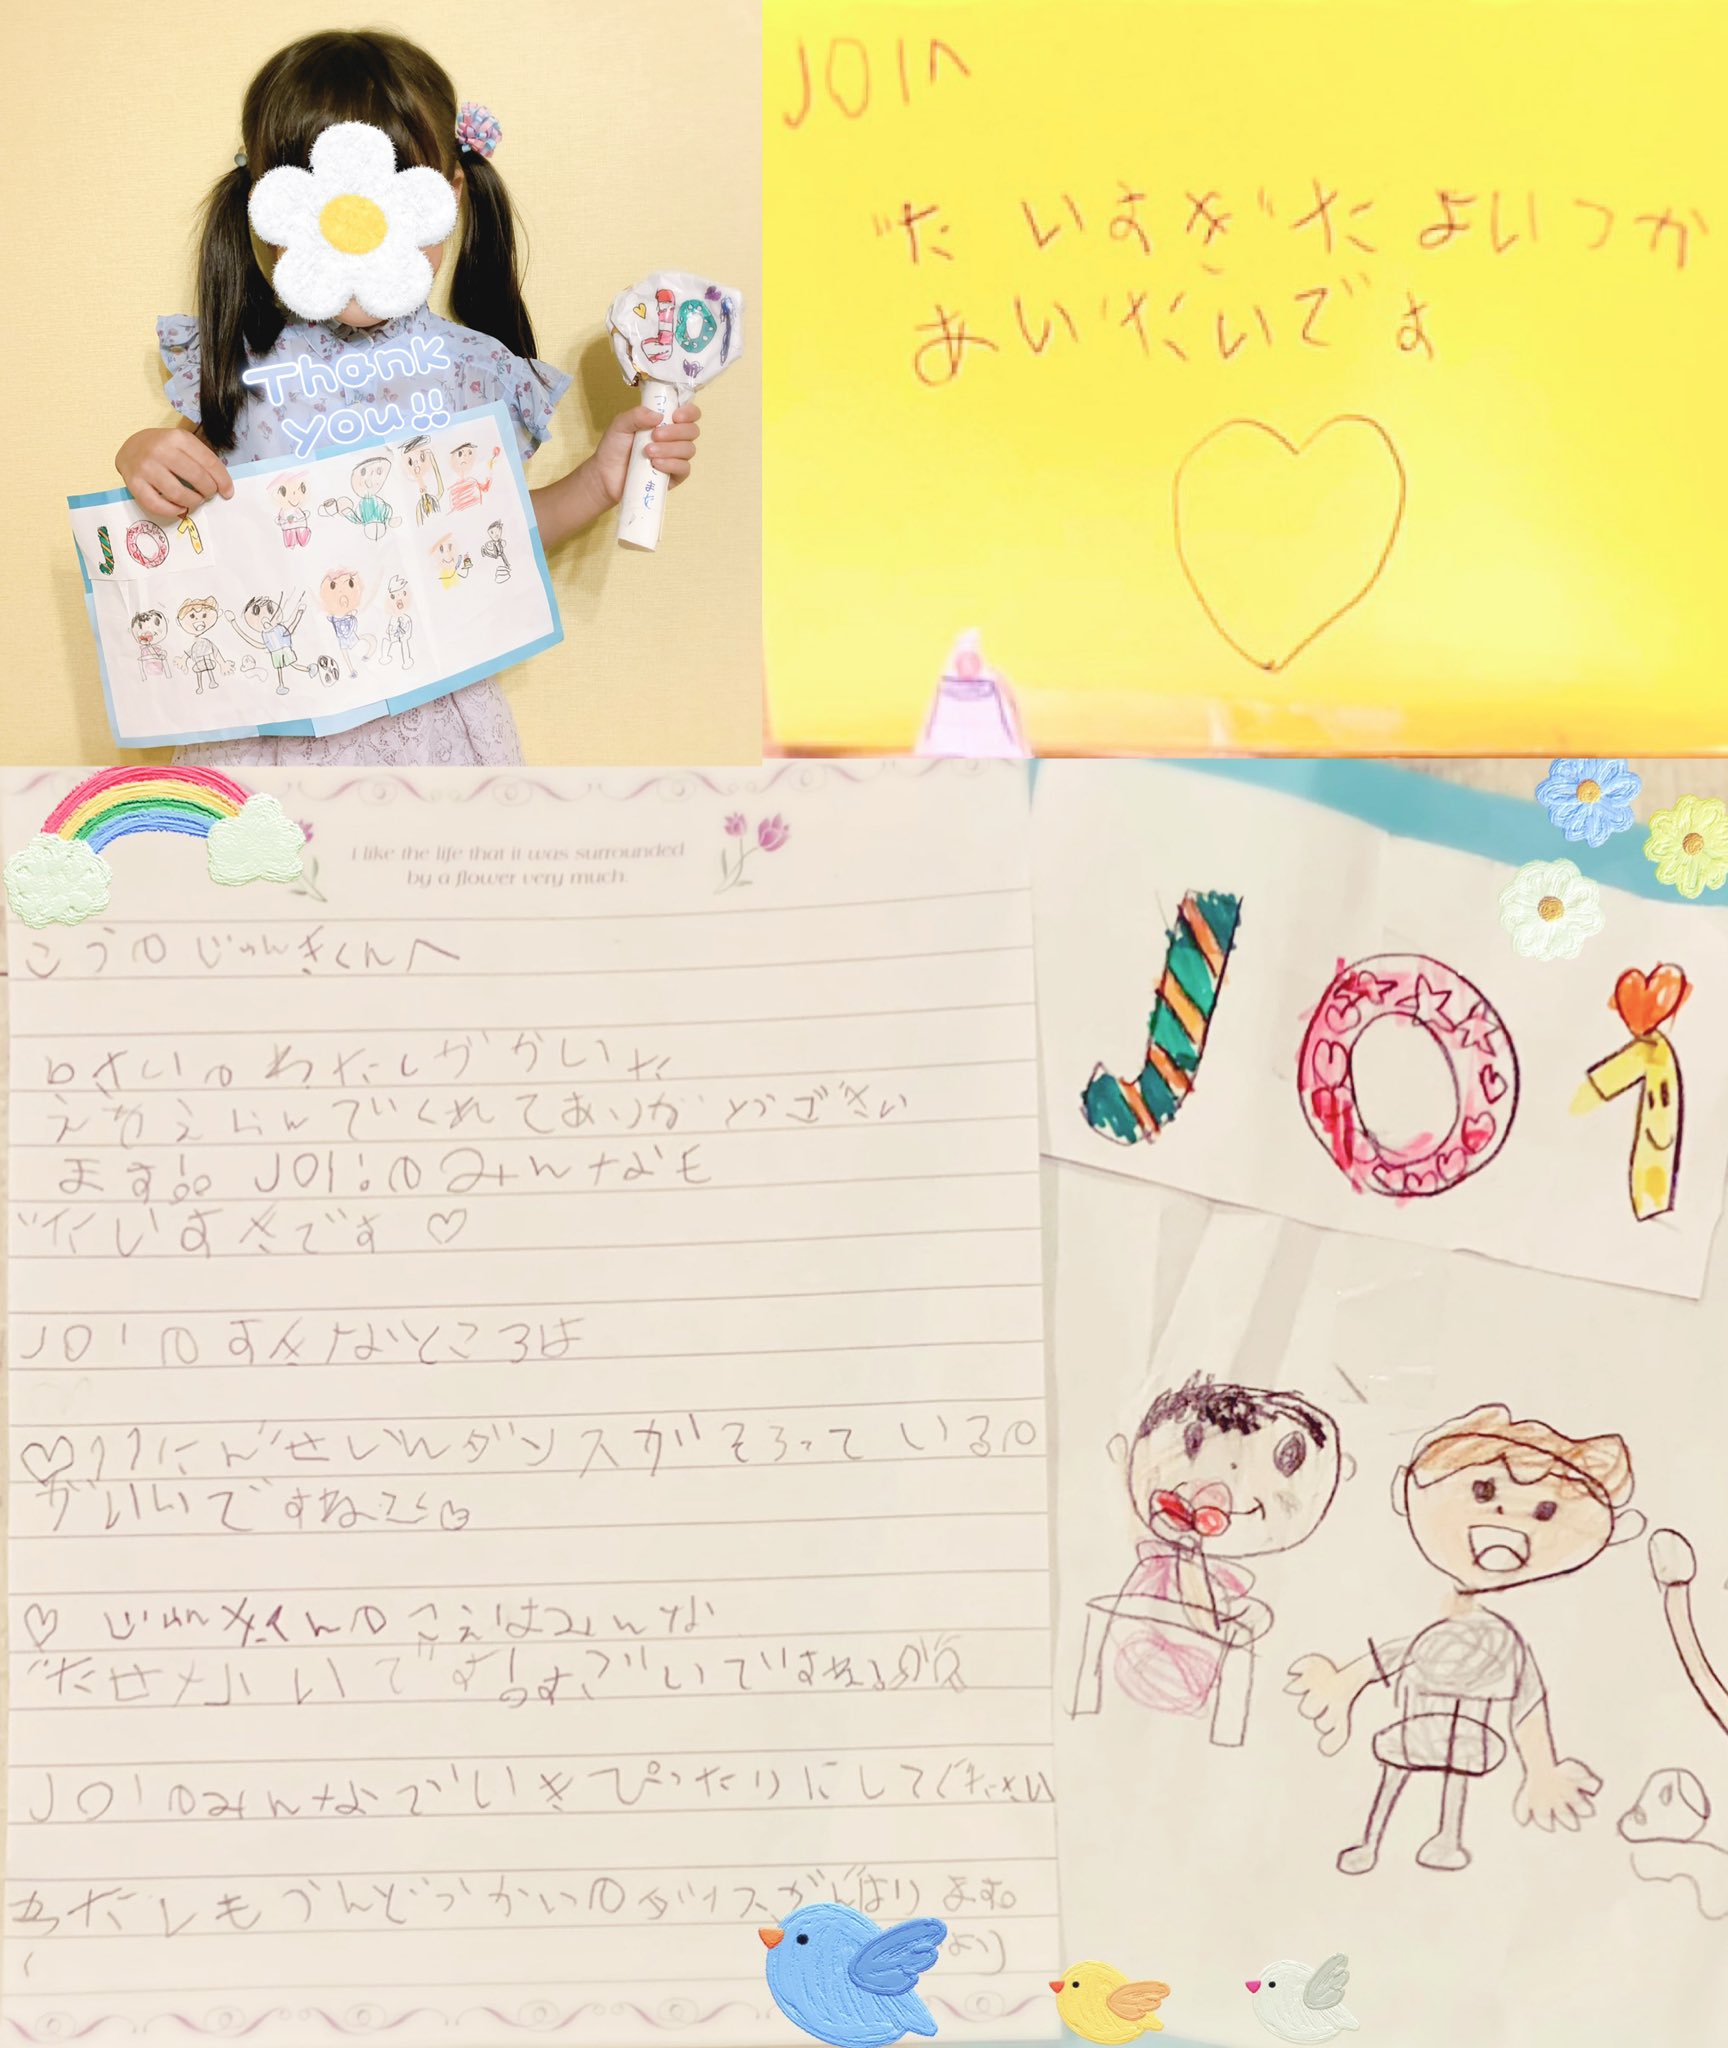 Thank
you!!
JO1
JO1へ
だいすきだよいつか
あいたいです
I like the life that it was surrounded
by a flower very much.
こうのじゅんきくんへ
さいのわたしがかいた
えをえらんでくれてありがとうござい
ます JO1のみんなも
だいすきです♡
JO1のすきなところは
♡11にんぜいいんダンスがそろっているの
がいいですね
♡じゅんきくんのこえはみんな
です!すごいですね!
JO1のみんなでいきぴったりにしてください
わたしもうんどうかいのダンスがんばります。
より
JO1